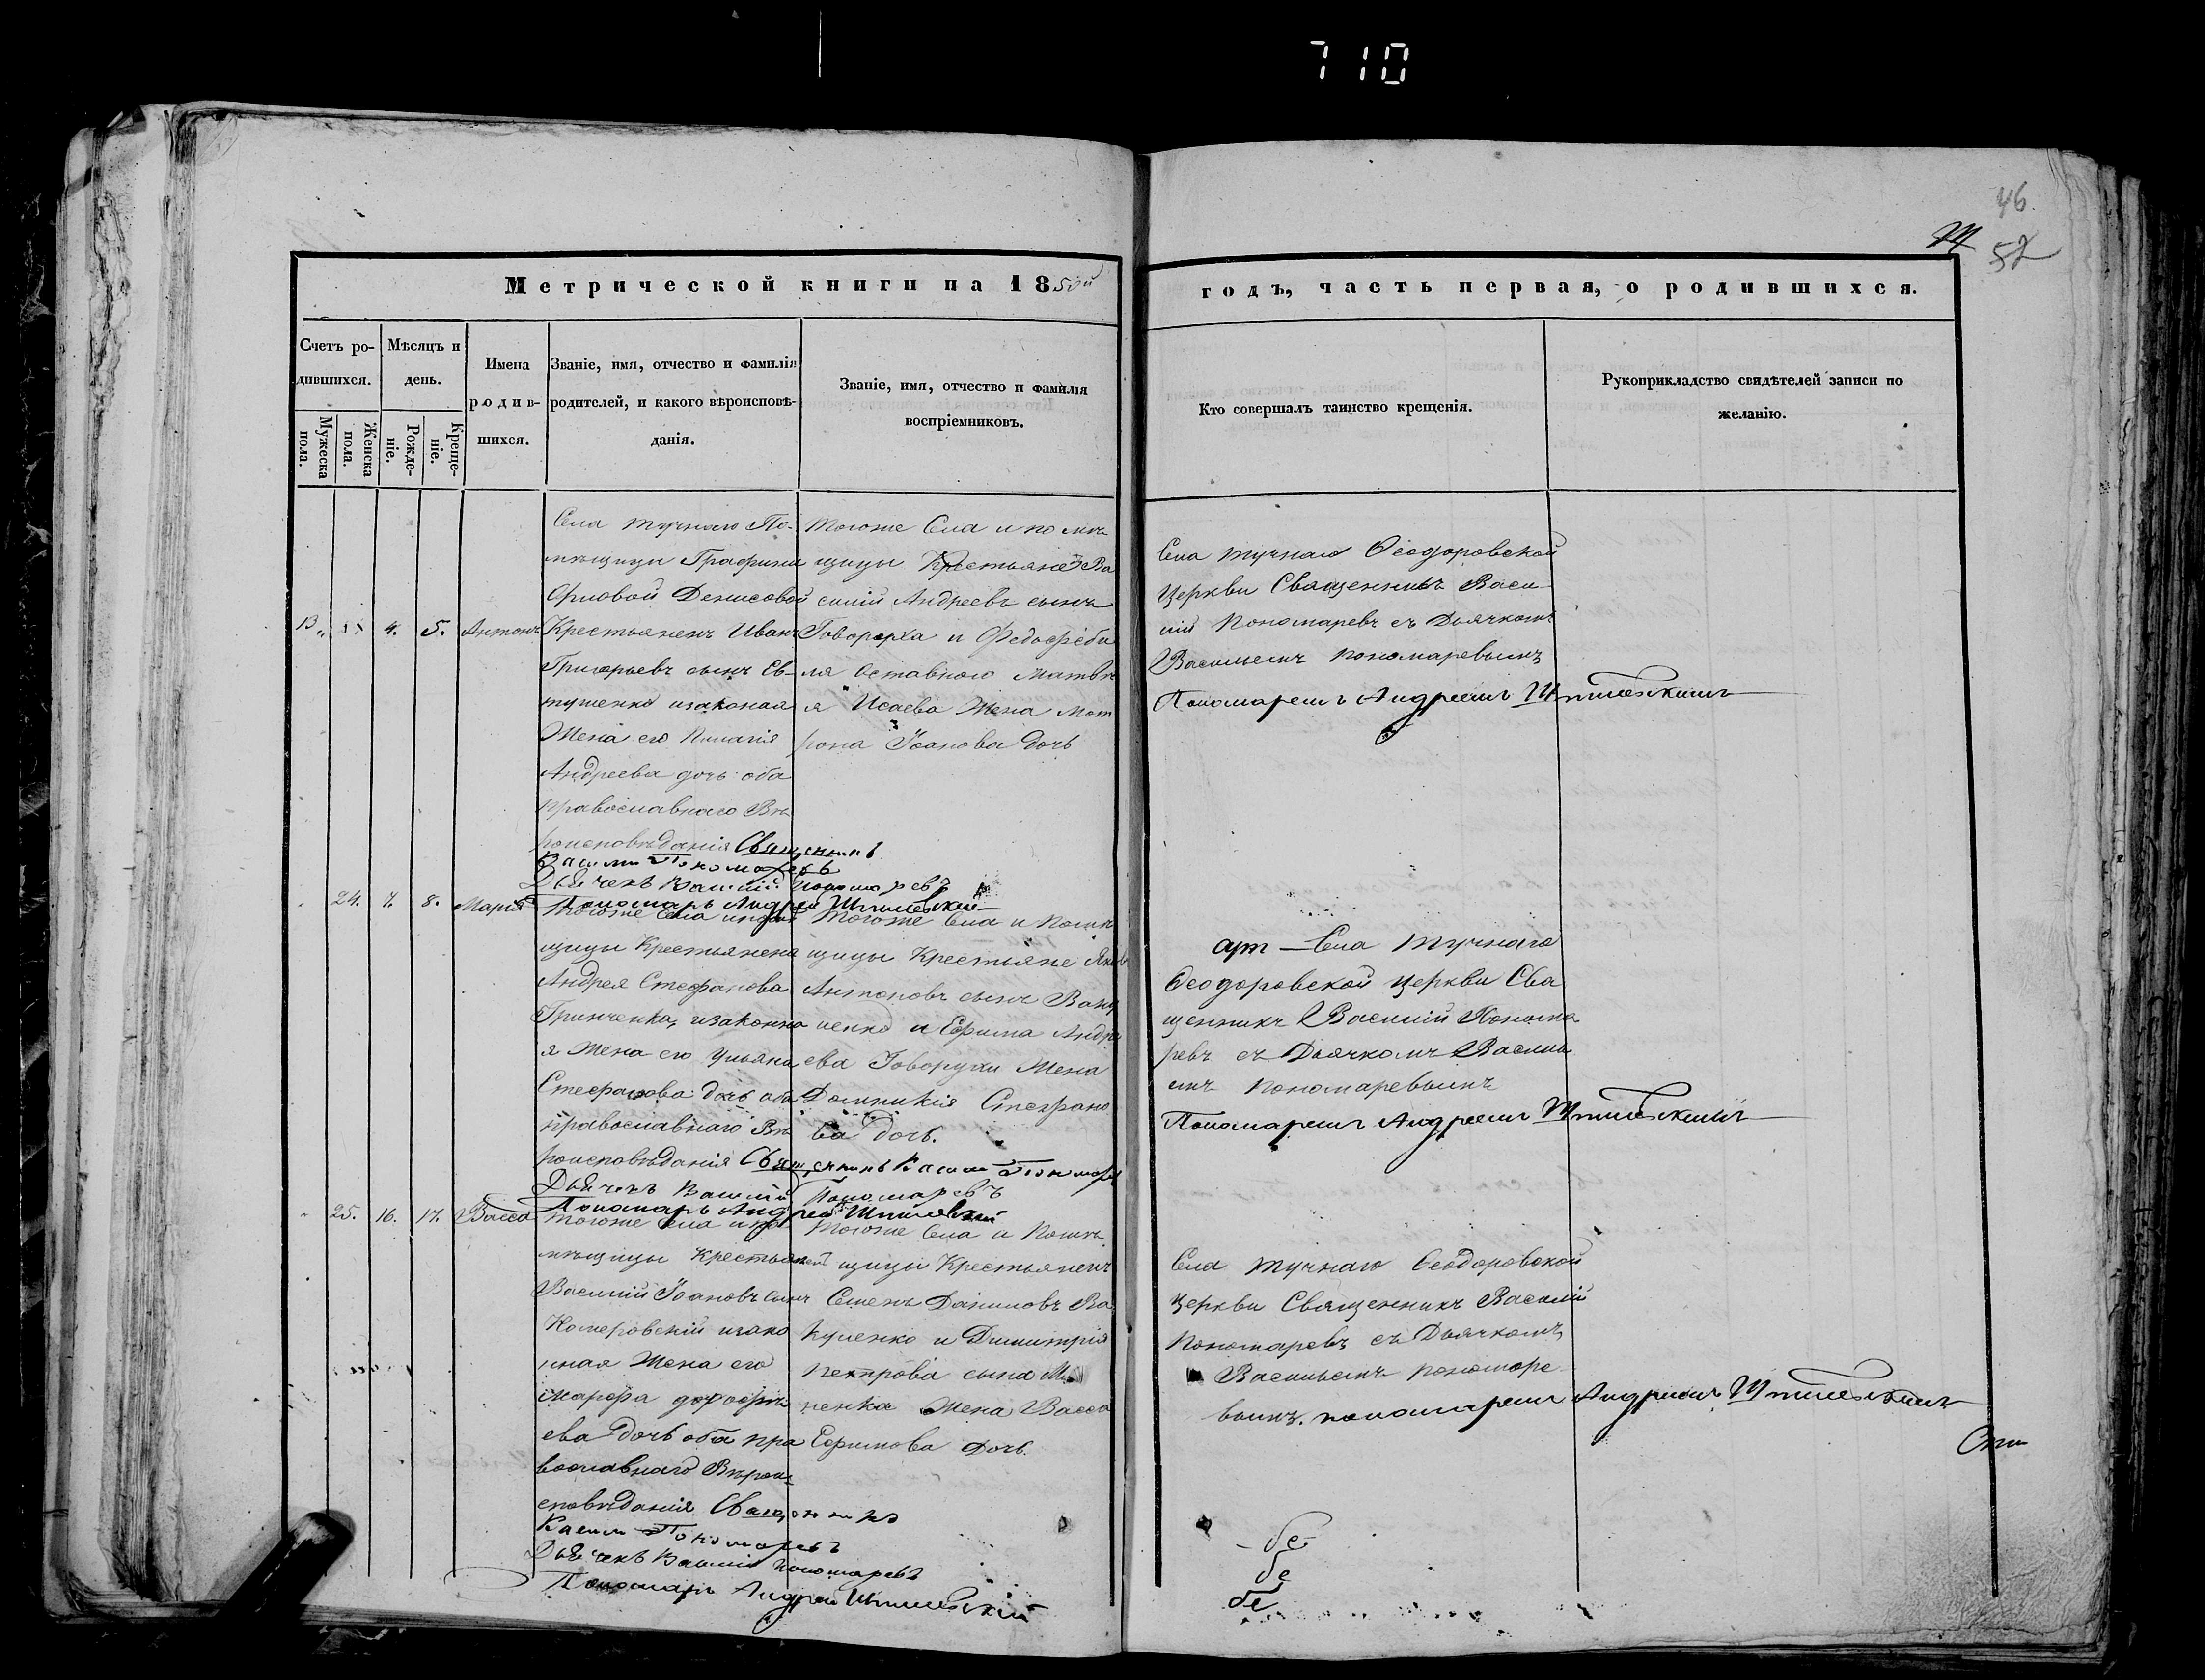 710
46
52
Метрической книги на 1850й
годъ, часть первая, о родившихся.
Счетъ ро-
дившихся.
Мужеска
пола.
Женска
пола.
Мѣсяцъ и
день.
Рожде-
ніе.
Креще-
ніе.
Имена
родив-
шихся.
Званіе, имя, отчество и фамилія
родителей, и какого вѣроисповѣ-
данія.
Званіе, имя, отчество и фамилія
воспріемниковъ.
Кто совершалъ таинство крещенія.
Рукоприкладство свидѣтелей записи по
желанію.
13 4. 5. Антонъ
Села Тучнаго По-
мѣщицы Графини
Орловой Денисовой
Крестьяненъ Иванъ
Григорьевъ сынъ Ев-
тушенко изаконая
Жена его Пилагія
Андреева дочь оба
православнаго Вѣ
роисповѣданія Священникъ
Василій Пономаревъ
Дьячекъ Василій Пономаревъ
Пономарь Андрей
Тогоже Села и помѣ
щицы Крестьяне Ва
силій Андреевъ сынъ
Говоруха и
ля Оставного Матвѣ
я Исаева Жена Мот
рона Іоанова Дочь
Села Тучнаго Ѳеодоровской
Церкви Священникъ Васи
лій Пономаревъ съ Дьячкомъ
Васильемъ Пономаревымъ
Пономаремъ Андреемъ
24. 7. 8. Марія
Тогоже Села
щицы Крестьянена
Андрея Стефанова
Гринченка, изаконна
я Жена его Ульяна
Стефанова дочь оба
православнаго Вѣ
роисповѣданія Священникъ Василій Пономаревъ
Дьячекъ Василій Пономаревъ
Пономарь Андрей
Тогоже Села и Помѣ
щицы Крестьяне Яковъ
Антоновъ сынъ
и Ефима Андре
ева Говорухи Жена
Домникія Стефано
ва дочь.
Села Тучнаго
Ѳеодоровской Церкви Свя
щенникъ Василій Понома
ревъ съ Дьячкомъ Василь
емъ Пономаревымъ
Пономаремъ Андреемъ
25. 16. 17. Васса
Тогоже Села
мѣщицы Крестьяненъ
Василій Іоановъ сынъ
изако
нная Жена его
Марфа Дорофѣ
ева дочь оба пра
вославнаго Вѣрои
сповѣданія Священникъ
Василій Пономаревъ
Дьячекъ Василій Пономаревъ
Пономарь Андрей
Тогоже Села и Помѣ
щицы Крестьяненъ
Семенъ Даниловъ Ва
куленко и Димитрія
Петрова сына
Жена Васса
Ефимова Дочь.
Села Тучнаго Ѳеодоровской
Церкви Священникъ Василій
Пономаревъ съ Дьячкомъ
Васильемъ Пономаре
вымъ. пономаремъ Андреемъ